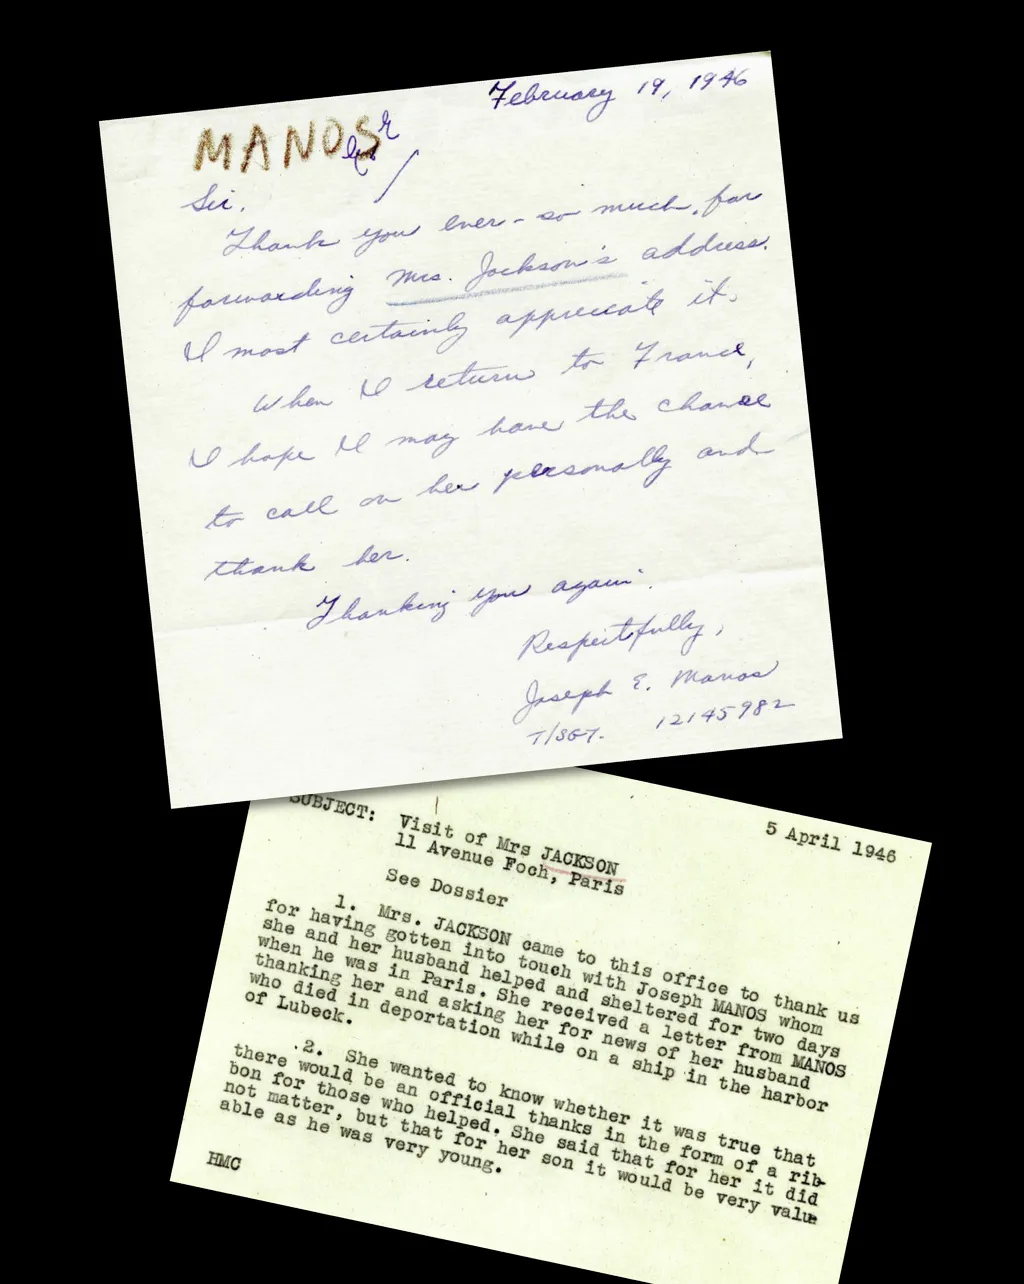 February 19, 1946
MANOS
Sir,
Thank you ever-so much, for
forwarding Mrs. Jackson's address.
I most certainly appreciate it.
When I return to France,
I hope I may have the chance
to call on her personally and
thank her.
Thanking you again.
Respectfully,
Joseph E. Manos
T/SGT. 12145982
5 April 1946
SUBJECT: Visit of Mrs JACKSON
11 Avenue Foch, Paris
See Dossier
1. Mrs. JACKSON came to this office to thank us
for having gotten into touch with Joseph MANOS whom
she and her husband helped and sheltered for two days
when he was in Paris. She received a letter from MANOS
thanking her and asking her for news of her husband
who died in deportation while on a ship in the harbor
of Lubeck.
2. She wanted to know whether it was true that
there would be an official thanks in the form of a rib-
bon for those who helped. She said that for her it did
not matter, but that for her son it would be very valu
able as he was very young.
HMC